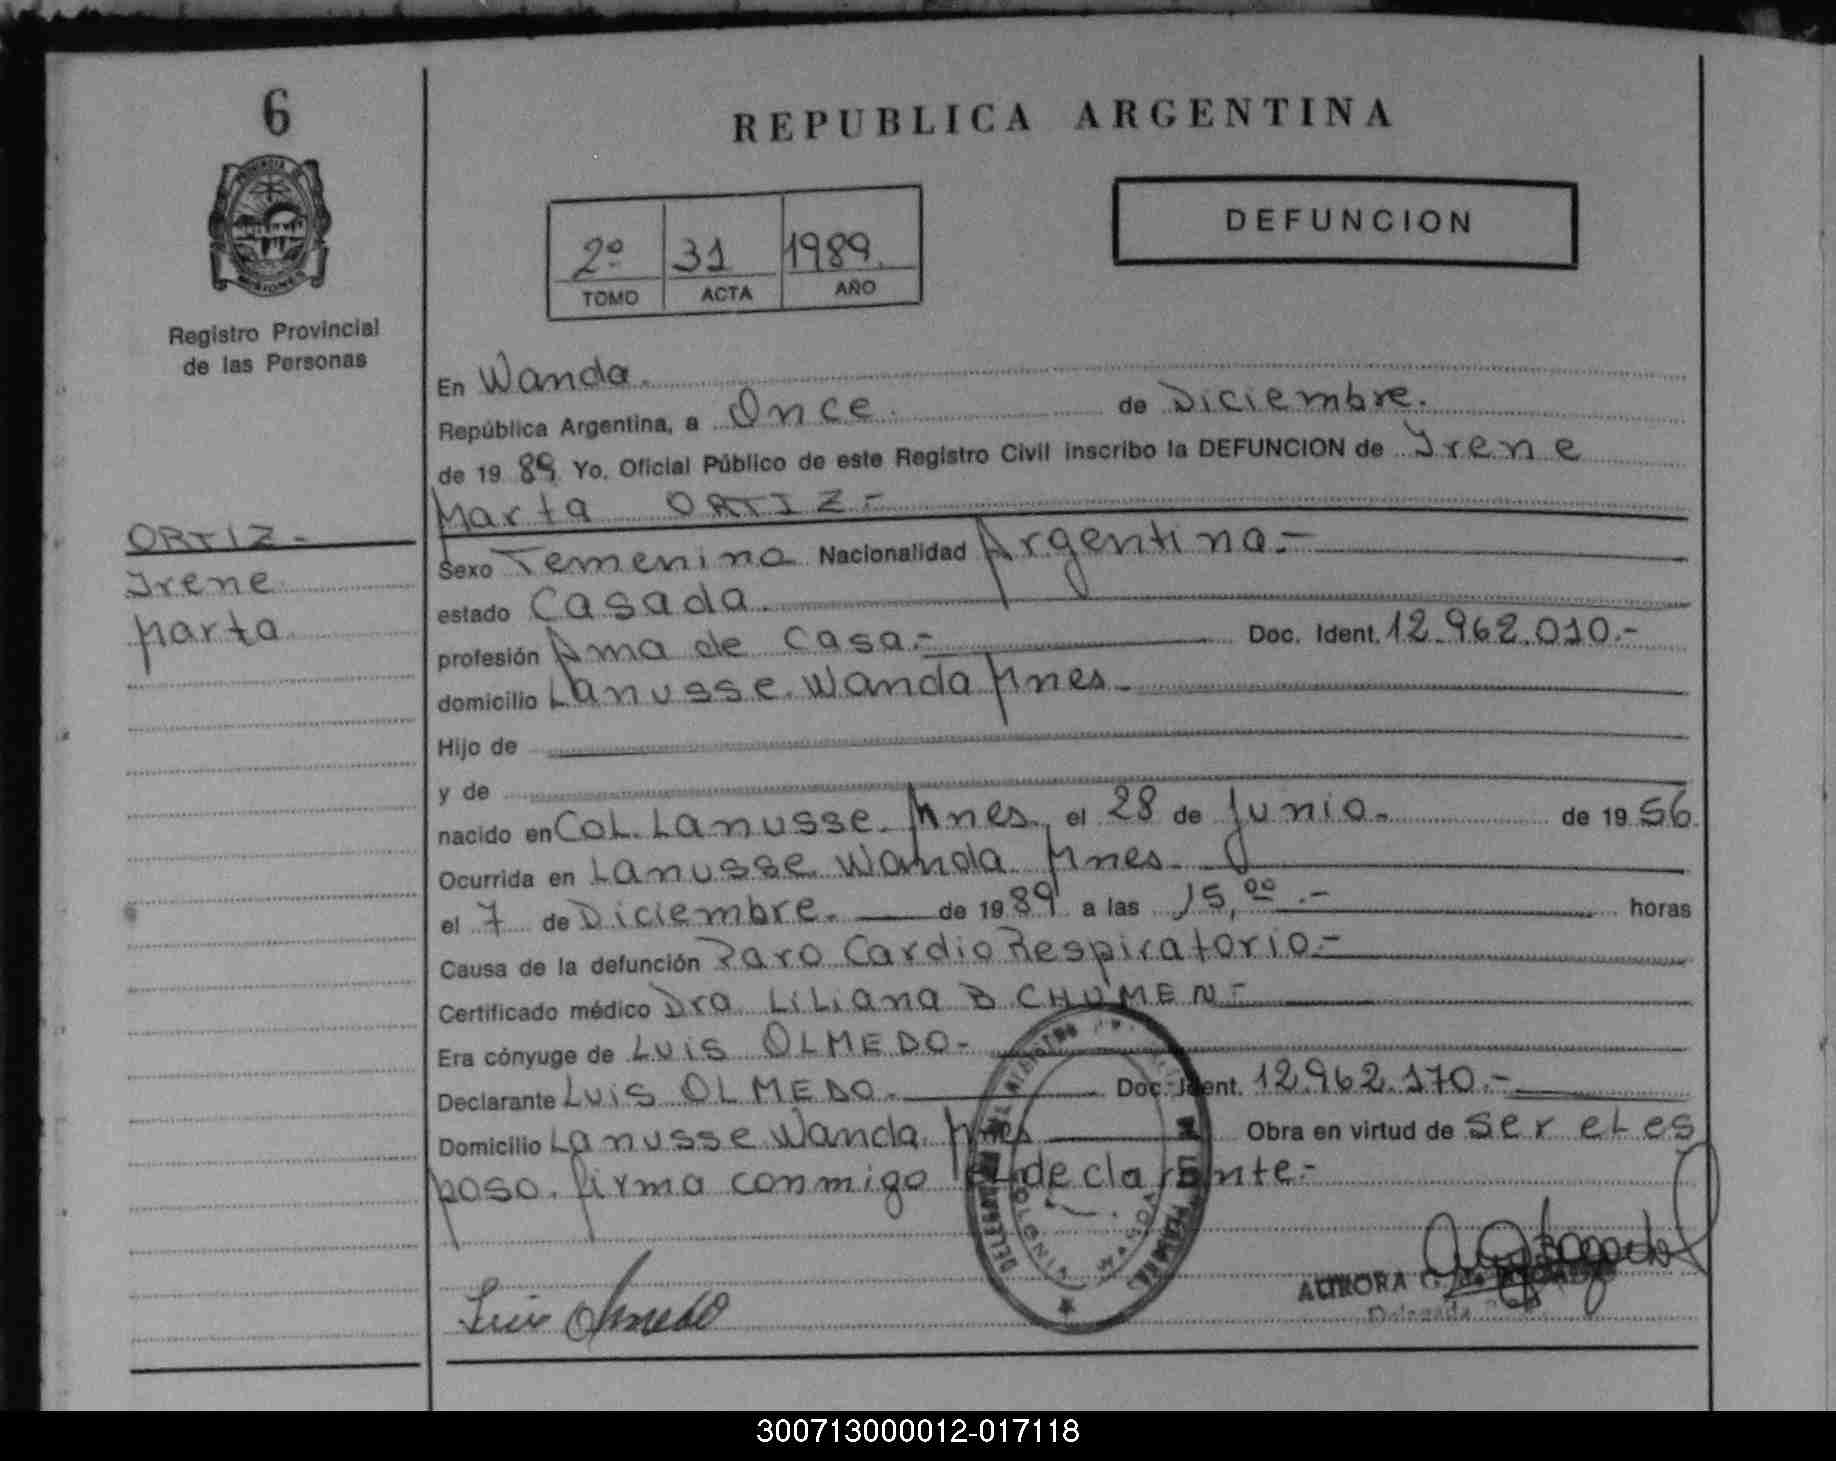 6
PROVINCIA
MISIONES
Registro Provincial
de las Personas
REPUBLICA ARGENTINA
2º 31 1989.
TOMO ACTA AÑO
DEFUNCION
ORTIZ.-
Irene
Marta
En Wanda.
República Argentina, a Once. de Diciembre.
de 19 89 Yo, Oficial Público de este Registro Civil inscribo la DEFUNCION de Irene
Marta ORTIZ.-
Sexo Femenino Nacionalidad Argentina.-
estado Casada.
profesión Ama de Casa.- Doc. Ident. 12.962.010.-
domicilio Lanusse. Wanda Mnes.
Hijo de
y de
nacido en Col. Lanusse. Mnes. el 28 de Junio. de 19 56.
Ocurrida en Lanusse. Wanda Mnes.
el 7 de Diciembre. de 19 89 a las 15,00.- horas
Causa de la defunción Paro Cardio Respiratorio.-
Certificado médico Dra LiLiana B CHUMEN.-
Era cónyuge de Luis OLMEDO.-
Declarante Luis OLMEDO. Doc. Ident. 12.962.170.-
Domicilio Lanusse Wanda Mnes Obra en virtud de ser el es
poso. firma conmigo el declarante.-
COLONIA WANDA
Luis Olmedo
AURORA G.
Delegada
300713000012-017118